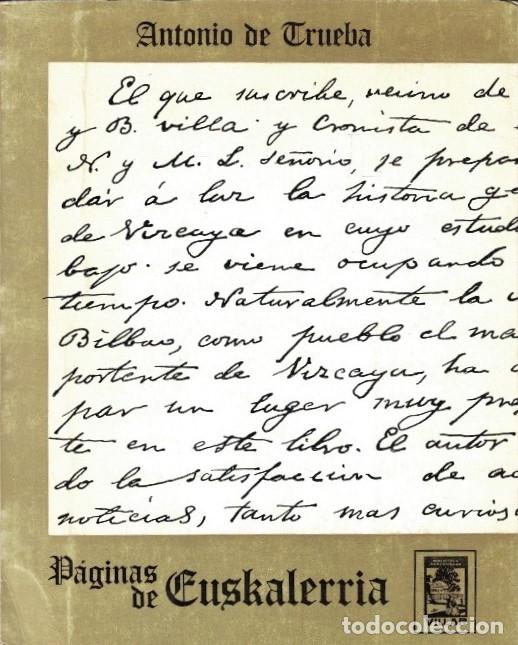 Antonio de Trueba
El que suscribe, vecino de
y B. villa y Cronista de
N. y M. L. señorio, se prepar
dar á luz la historia ge
de Vizcaya en cuyo estudi
bajo se viene ocupando
tiempo. Naturalmente la
Bilbao, como pueblo el ma
portente de Vizcaya, ha
par un luger muy pre
te en este libro. El autor
do la satisfaccion de
noticias, tanto mas curios
Páginas
de Euskalerria
todocoleccion
todocoleccion.net